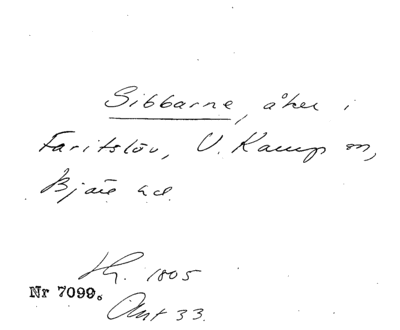 Sibbarne, åker i
Faritslöv, V. Karup sn,
Bjäre hd.
Hg. 1805
Nr 7099.
Akt 33.